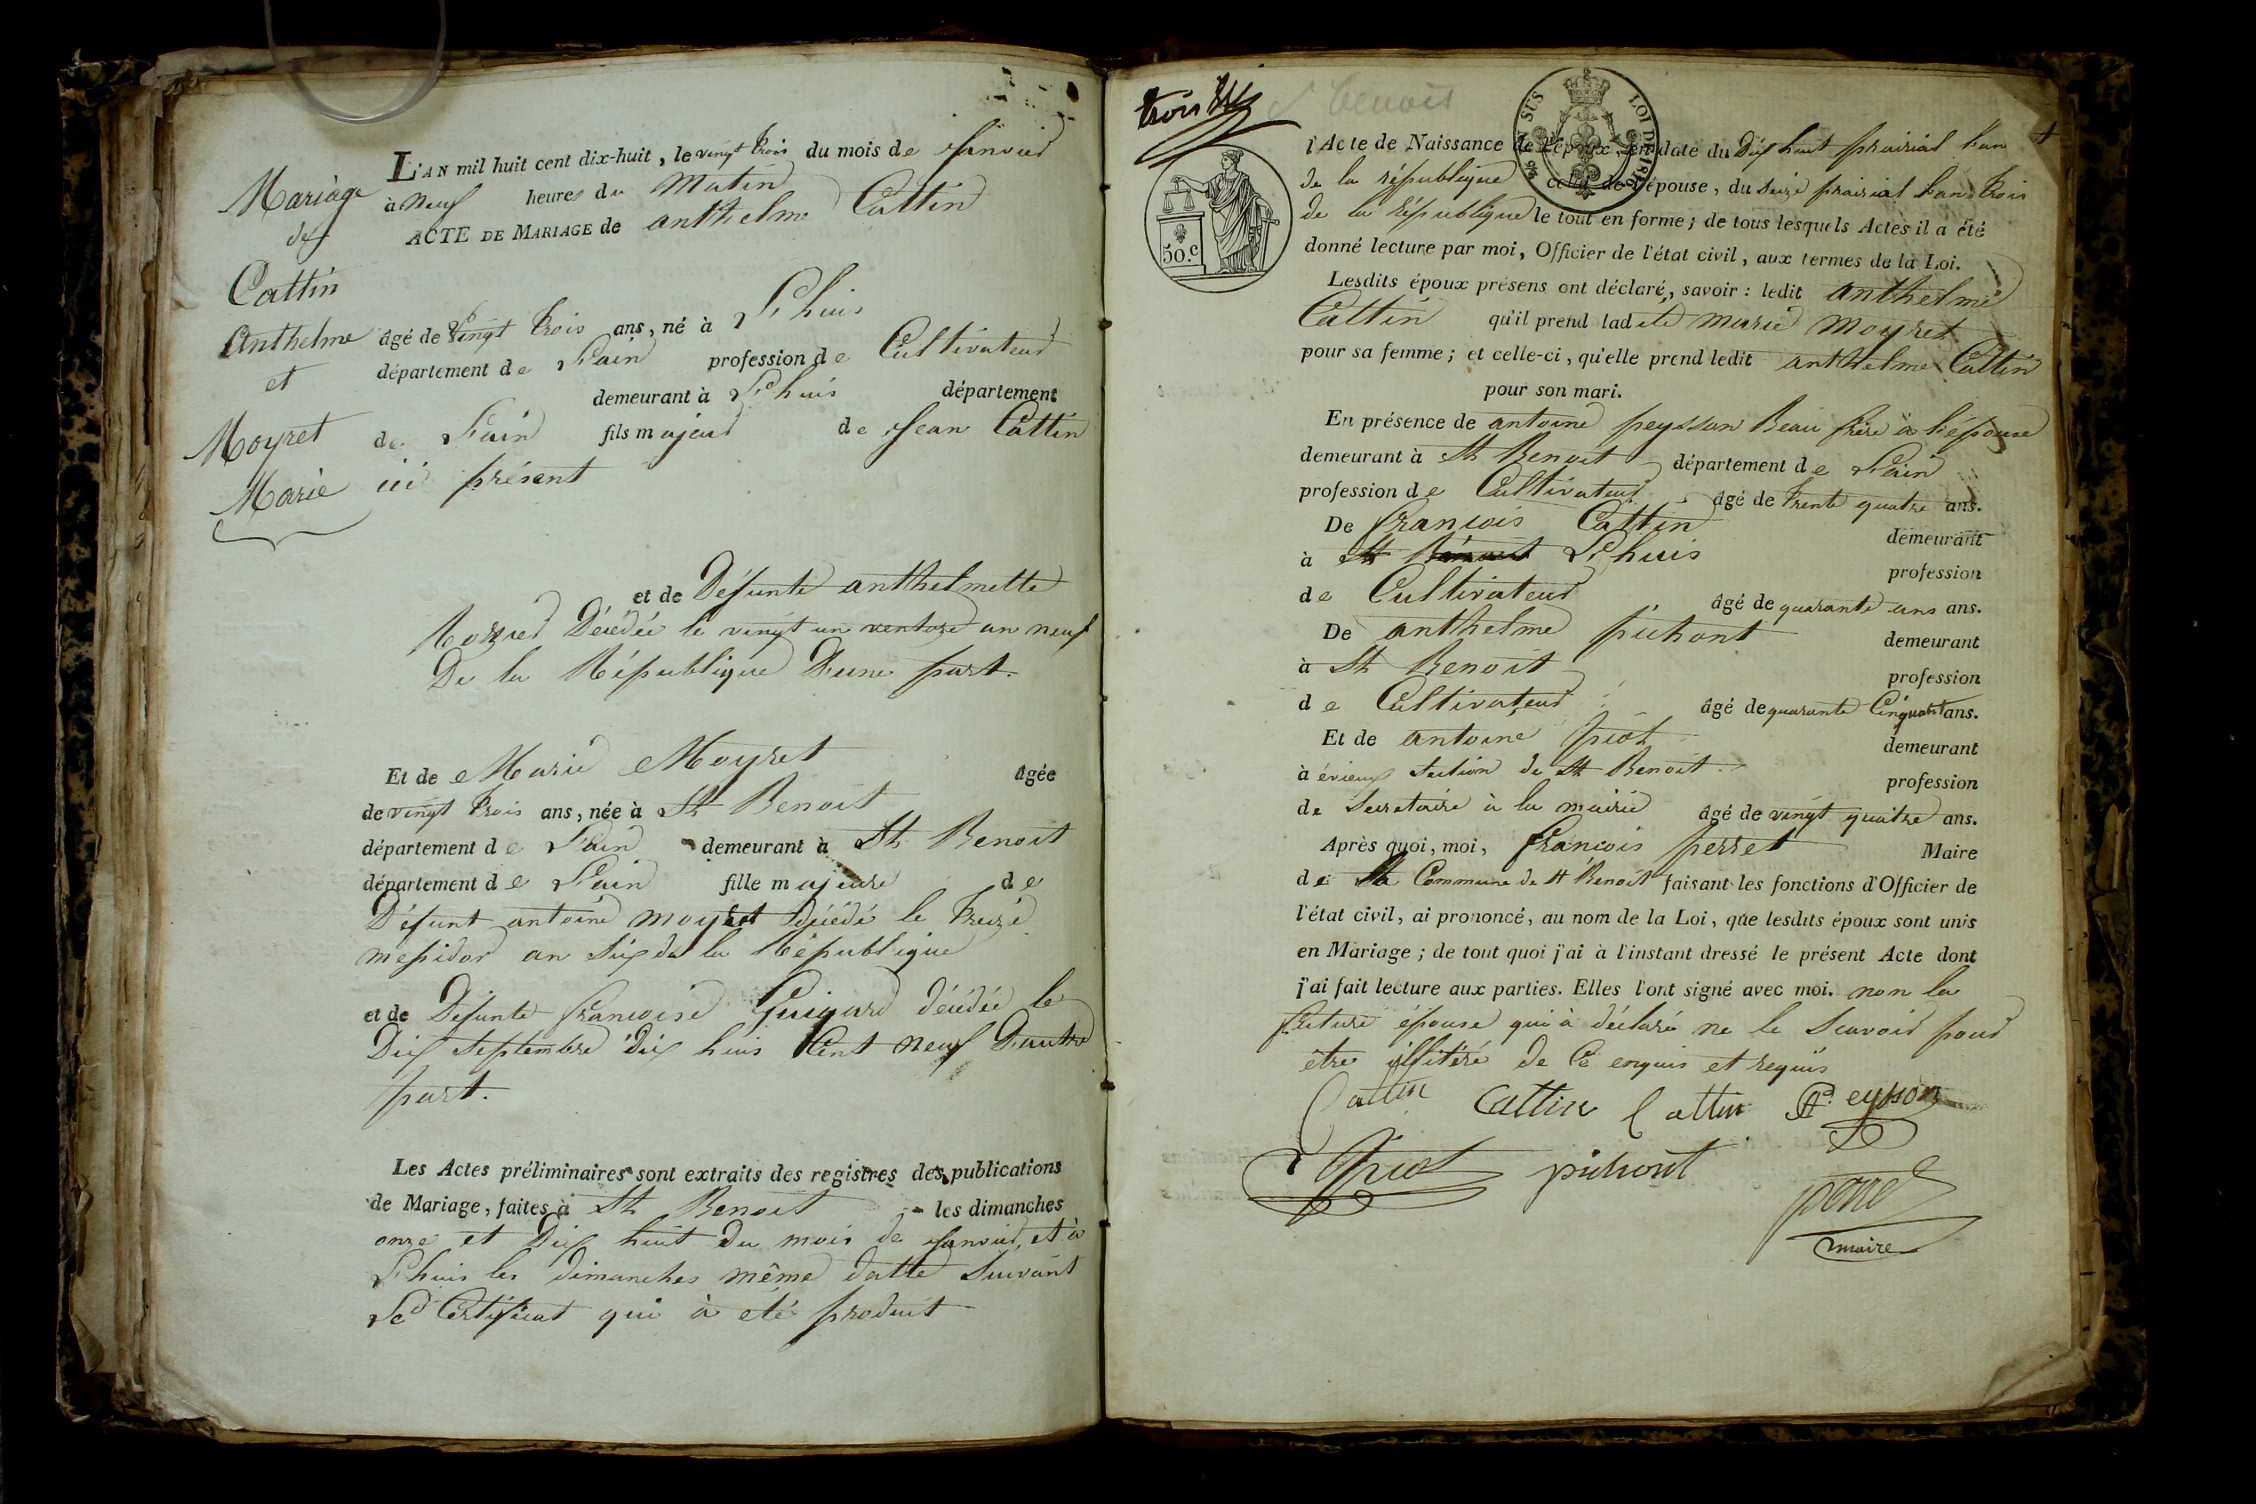 Mariage
de
Cattin
Anthelme
et
Moyret
Marie
L'AN mil huit cent dix-huit, le vingt trois du mois de Janvier
à neuf heures du Matin
ACTE DE MARIAGE de anthelme Cattin
âgé de vingt trois ans, né à Lhuis
département de L'ain profession de Cultivateur
demeurant à Lhuis département
de L'ain fils majeur de Jean Cattin
ici présent
et de Défunte anthelmette
Décédée le vingt un ventose an neuf
De la République D'une part.
Et de Marie Moyret âgée
de vingt trois ans, née à St Benoit
département de L'ain demeurant à St Benoit
département de L'ain fille majeure de
Défunt antoine moyret Décédé le treize
messidor an Six de la République
et de Défunte françoise Guigard décédée le
Dix Septembre Dix huis Cent neuf D'autre
part.
Les Actes préliminaires sont extraits des registres des publications
de Mariage, faites à St Benoit les dimanches
onze et Dix huit Du mois de Janvier, et à
Lhuis les dimanches même datte Suivant
Le Certificat qui à eté produit
trois
St Benoit
LOI DE 1816
50.c
l'Acte de Naissance de l'époux, en date du Dix huit prairial l'an
de la république celui de l'épouse, du seize prairial l'an trois
de la république le tout en forme; de tous lesquels Actes il a été
donné lecture par moi, Officier de l'état civil, aux termes de la Loi.
Lesdits époux présens ont déclaré, savoir: ledit anthelme
Cattin qu'il prend ladite marie moyret
pour sa femme; et celle-ci, qu'elle prend ledit anthelme Cattin
pour son mari.
En présence de antoine peysson Beau frère à l'épouse
demeurant à St Benoit département de L'ain
profession de Cultivateur âgé de trente quatre ans.
De françois Cattin demeurant
à St Benoit Lhuis profession
de Cultivateur âgé de quarante ans ans.
De anthelme pichont demeurant
à St Benoit profession
de Cultivateur âgé de quarante Cinq ans.
Et de antoine piot demeurant
à évieux section de St Benoit profession
de Secretaire à la mairie âgé de vingt quatre ans.
Après quoi, moi, françois perret Maire
de la Commune de St Benoit faisant les fonctions d'Officier de
l'état civil, ai prononcé, au nom de la Loi, que lesdits époux sont unis
en Mariage; de tout quoi j'ai à l'instant dressé le présent Acte dont
j'ai fait lecture aux parties. Elles l'ont signé avec moi. non la
future épouse qui à déclaré ne le Scavoir pour
etre illitéré de Ce enquis et requis
Cattin Cattin Cattin Peysson
Piot pichont
perret
maire